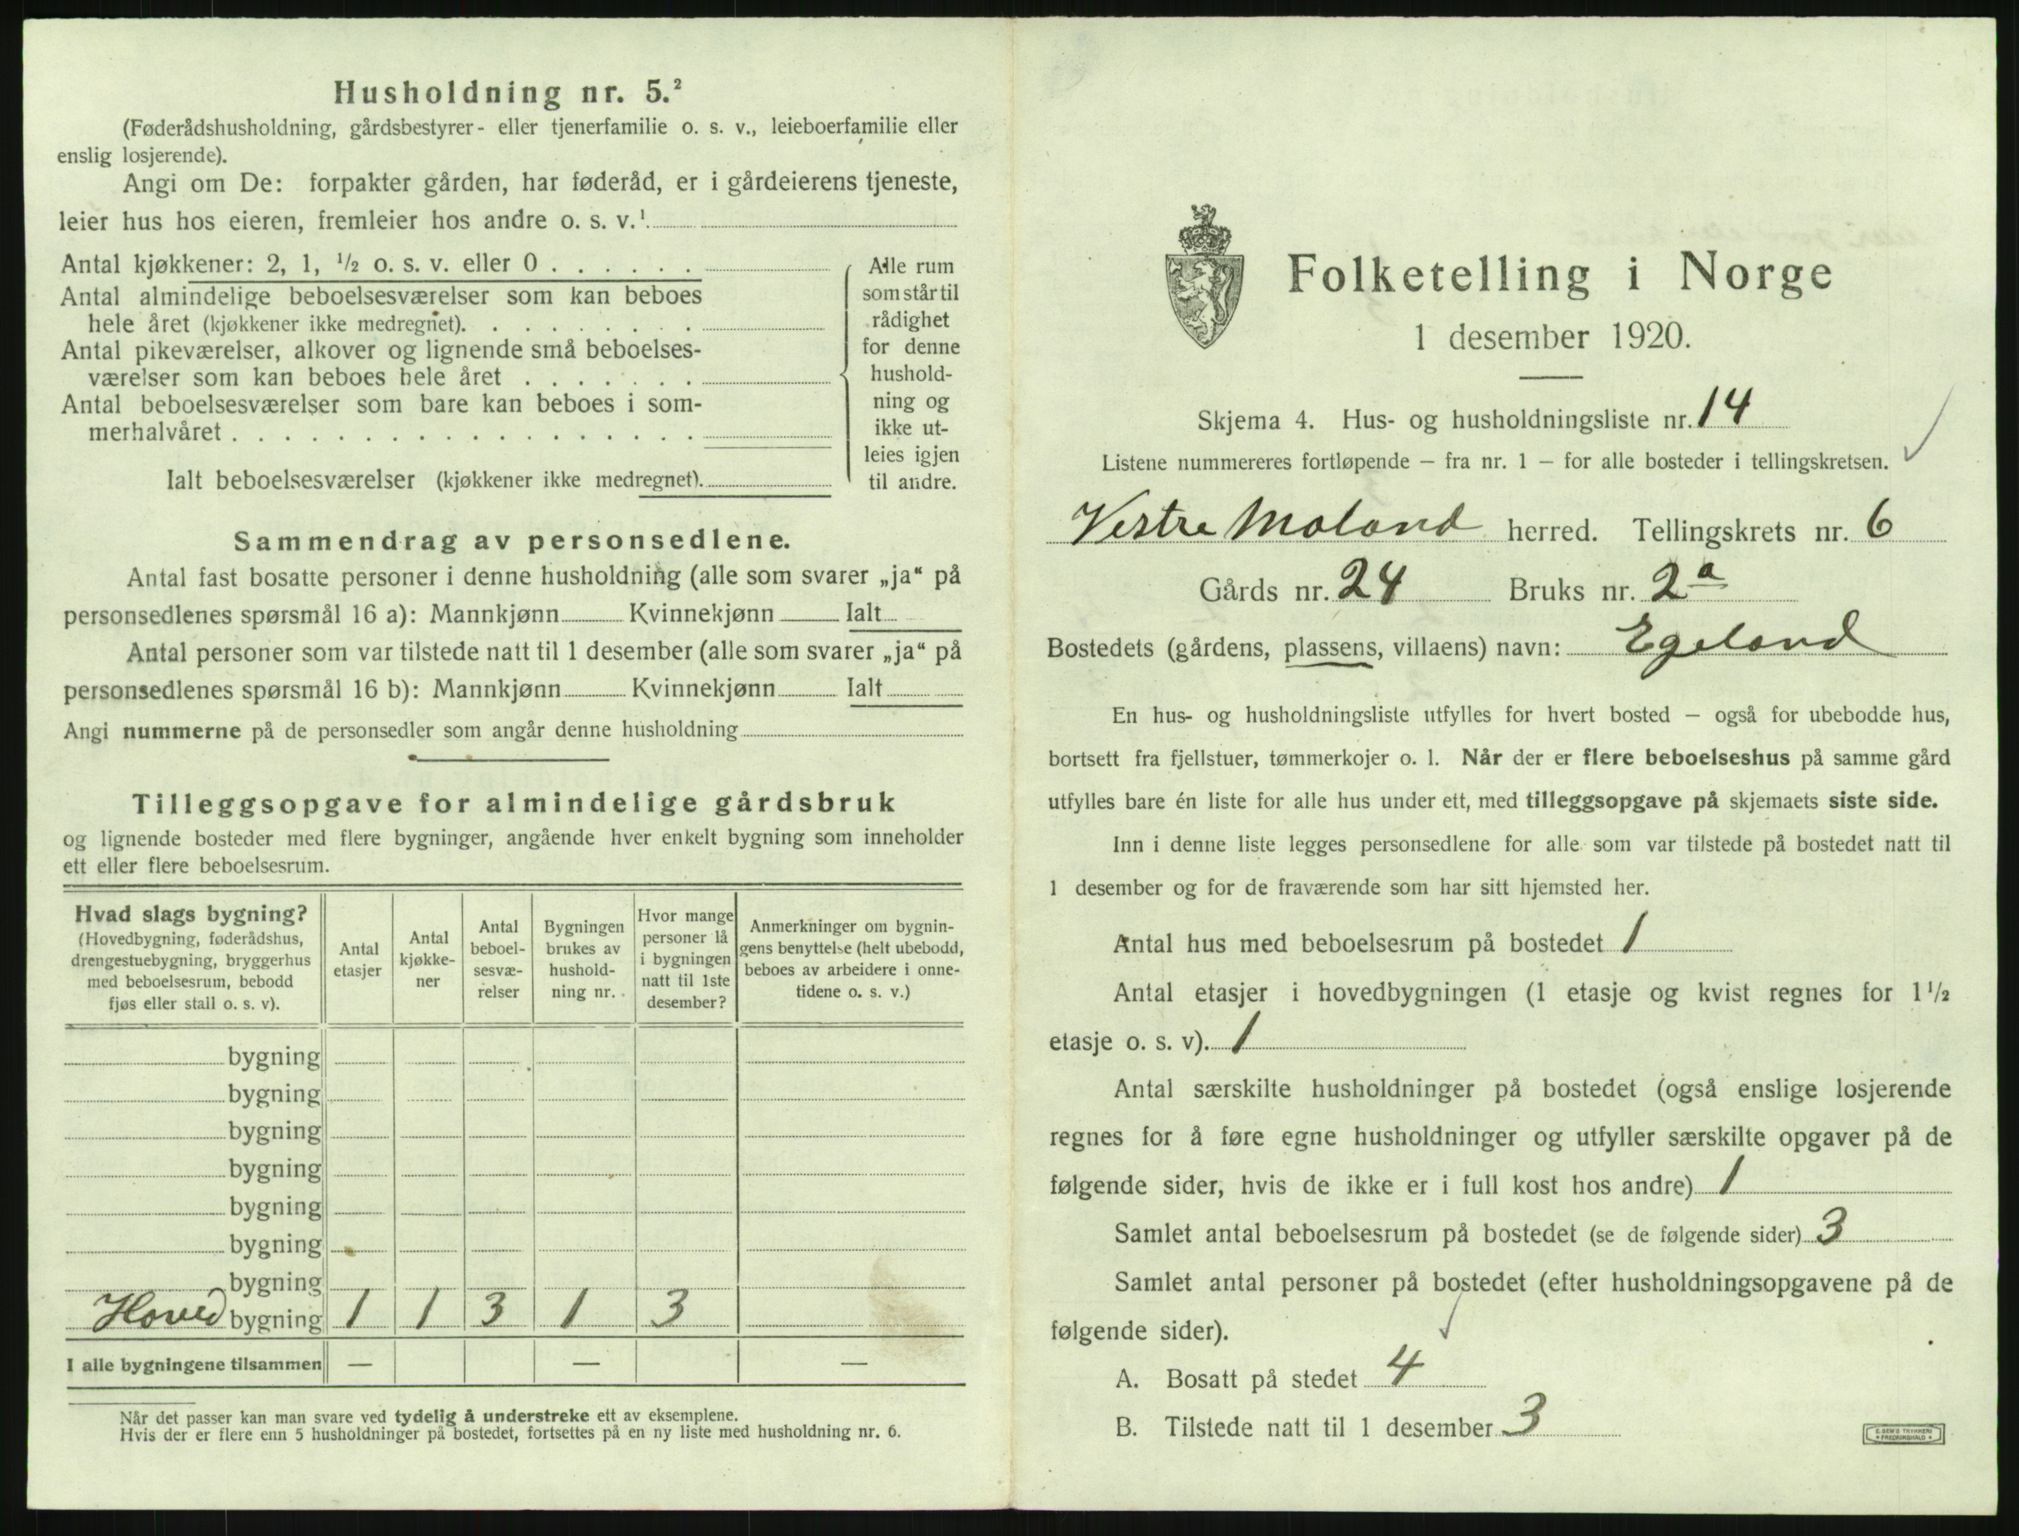 Husholdning nr. 5.²
(Føderådshusholdning, gårdsbestyrer- eller tjenerfamilie o. s. v., leieboerfamilie eller
enslig losjerende).
Angi om De: forpakter gården, har føderåd, er i gårdeierens tjeneste,
leier hus hos eieren, fremleier hos andre o. s. v.¹
Antal kjøkkener: 2, 1, ½ o. s. v. eller 0 . . . . . .
Antal almindelige beboelsesværelser som kan beboes
hele året (kjøkkener ikke medregnet). . . . . . . . .
Antal pikeværelser, alkover og lignende små beboelses-
værelser som kan beboes hele året . . . . . . .
Antal beboelsesværelser som bare kan beboes i som-
merhalvåret . . . . . . . . . . . . . . . . . .
Ialt beboelsesværelser (kjøkkener ikke medregnet).
Alle rum
som står til
rådighet
for denne
hushold-
ning og
ikke ut-
leies igjen
til andre.
Sammendrag av personsedlene.
Antal fast bosatte personer i denne husholdning (alle som svarer „ja“ på
personsedlenes spørsmål 16 a): Mannkjønn Kvinnekjønn Ialt
Antal personer som var tilstede natt til 1 desember (alle som svarer „ja“ på
personsedlenes spørsmål 16 b): Mannkjønn Kvinnekjønn Ialt
Angi nummerne på de personsedler som angår denne husholdning
Tilleggsopgave for almindelige gårdsbruk
og lignende bosteder med flere bygninger, angående hver enkelt bygning som inneholder
ett eller flere beboelsesrum.
Hvad slags bygning?
(Hovedbygning, føderådshus,
drengestuebygning, bryggerhus
med beboelsesrum, bebodd
fjøs eller stall o. s. v).
Antal
etasjer
Antal
kjøkke-
ner
Antal
beboel-
sesvæ-
relser
Bygningen
brukes av
hushold-
ning nr.
Hvor mange
personer lå
i bygningen
natt til 1ste
desember?
Anmerkninger om bygnin-
gens benyttelse (helt ubebodd,
beboes av arbeidere i onne-
tidene o. s. v.)
bygning
bygning
bygning
bygning
bygning
bygning
bygning
Hoved bygning 1 1 3 1 3
I alle bygningene tilsammen — — —
Når det passer kan man svare ved tydelig å understreke ett av eksemplene.
Hvis der er flere enn 5 husholdninger på bostedet, fortsettes på en ny liste med husholdning nr. 6.
Folketelling i Norge
1 desember 1920.
Skjema 4. Hus- og husholdningsliste nr. 14
Listene nummereres fortløpende – fra nr. 1 – for alle bosteder i tellingskretsen.
Vestre Moland herred. Tellingskrets nr. 6
Gårds nr. 24 Bruks nr. 2a
Bostedets (gårdens, plassens, villaens) navn: Egeland
En hus- og husholdningsliste utfylles for hvert bosted – også for ubebodde hus,
bortsett fra fjellstuer, tømmerkojer o. l. Når der er flere beboelseshus på samme gård
utfylles bare én liste for alle hus under ett, med tilleggsopgave på skjemaets siste side.
Inn i denne liste legges personsedlene for alle som var tilstede på bostedet natt til
1 desember og for de fraværende som har sitt hjemsted her.
Antal hus med beboelsesrum på bostedet 1
Antal etasjer i hovedbygningen (1 etasje og kvist regnes for 1½
etasje o. s. v). 1
Antal særskilte husholdninger på bostedet (også enslige losjerende
regnes for å føre egne husholdninger og utfyller særskilte opgaver på de
følgende sider, hvis de ikke er i full kost hos andre) 1
Samlet antal beboelsesrum på bostedet (se de følgende sider) 3
Samlet antal personer på bostedet (efter husholdningsopgavene på de
følgende sider).
A. Bosatt på stedet 4
B. Tilstede natt til 1 desember 3